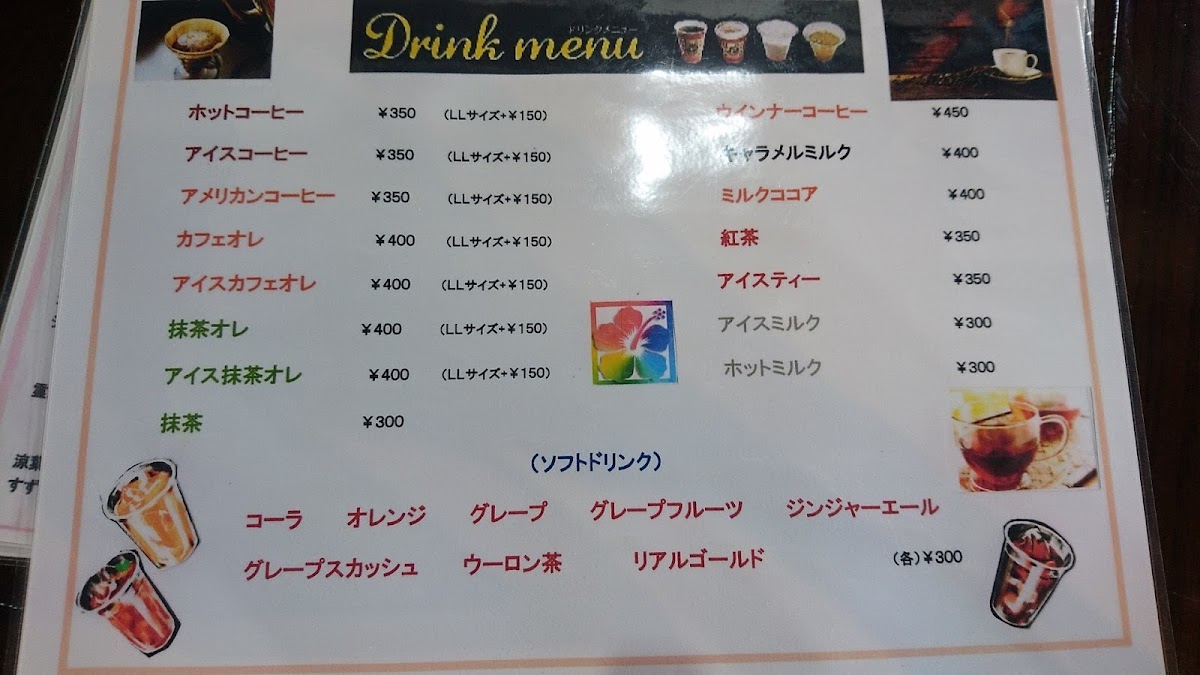 ドリンクメニュー
Drink menu
ホットコーヒー ¥350 (LLサイズ+¥150)
アイスコーヒー ¥350 (LLサイズ+¥150)
アメリカンコーヒー ¥350 (LLサイズ+¥150)
カフェオレ ¥400 (LLサイズ+¥150)
アイスカフェオレ ¥400 (LLサイズ+¥150)
抹茶オレ ¥400 (LLサイズ+¥150)
アイス抹茶オレ ¥400 (LLサイズ+¥150)
抹茶 ¥300
ウインナーコーヒー ¥450
キャラメルミルク ¥400
ミルクココア ¥400
紅茶 ¥350
アイスティー ¥350
アイスミルク ¥300
ホットミルク ¥300
(ソフトドリンク)
コーラ オレンジ グレープ グレープフルーツ ジンジャーエール
グレープスカッシュ ウーロン茶 リアルゴールド (各)¥300